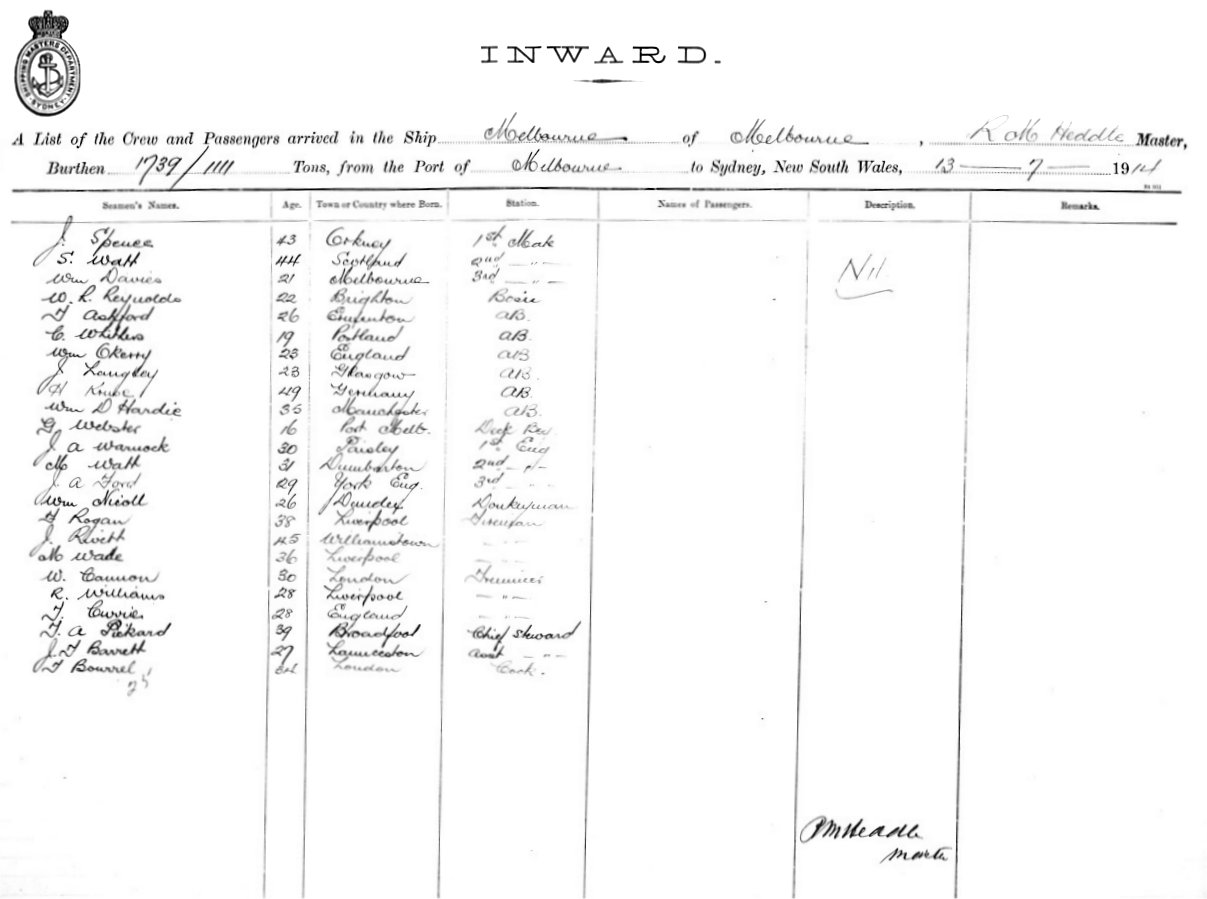 SHIPPING MASTERS DEPARTMENT SYDNEY
INWARD.
A List of the Crew and Passengers arrived in the Ship Melbourne of Melbourne, R M Heddle Master,
Burthen 1739/1111 Tons, from the Port of Melbourne to Sydney, New South Wales, 13 — 7 — 1914
Seamen's Names. Age. Town or Country where Born. Station. Names of Passengers. Description. Remarks.
J. Spence 43 Orkney 1st Mate
S. Watt 44 Scotland 2nd — " —
Wm Davies 21 Melbourne 3rd — " —
Nil
W. R. Reynolds 22 Brighton
Ashford 26 AB.
C. Withers 19 Portland AB.
Wm Okerry 23 England AB
J Langley 23 Glasgow AB.
H Kruse 49 Germany AB.
Wm D Hardie 35 Manchester AB.
G. Webster 16 Port Melb. Deck Boy
J. A Warnock 30 Paisley 1st Eng
M Watt 31 Dumbarton 2nd — " —
J. A Ford 29 York Eng. 3rd - " -
Wm Nicoll 26 Dundee Donkeyman
Rogan 38 Liverpool Fireman
J. Rivett 45 Williamstown - " -
M Wade 36 Liverpool - " -
W. Cannon 30 London Trimmer
R. Williams 28 Liverpool — " —
Currie 28 England - " -
A Pickard 39 Chief Steward
Barrett 27 Launceston Asst — " —
Bourrel London Cook.
25
RMHeddle
Master